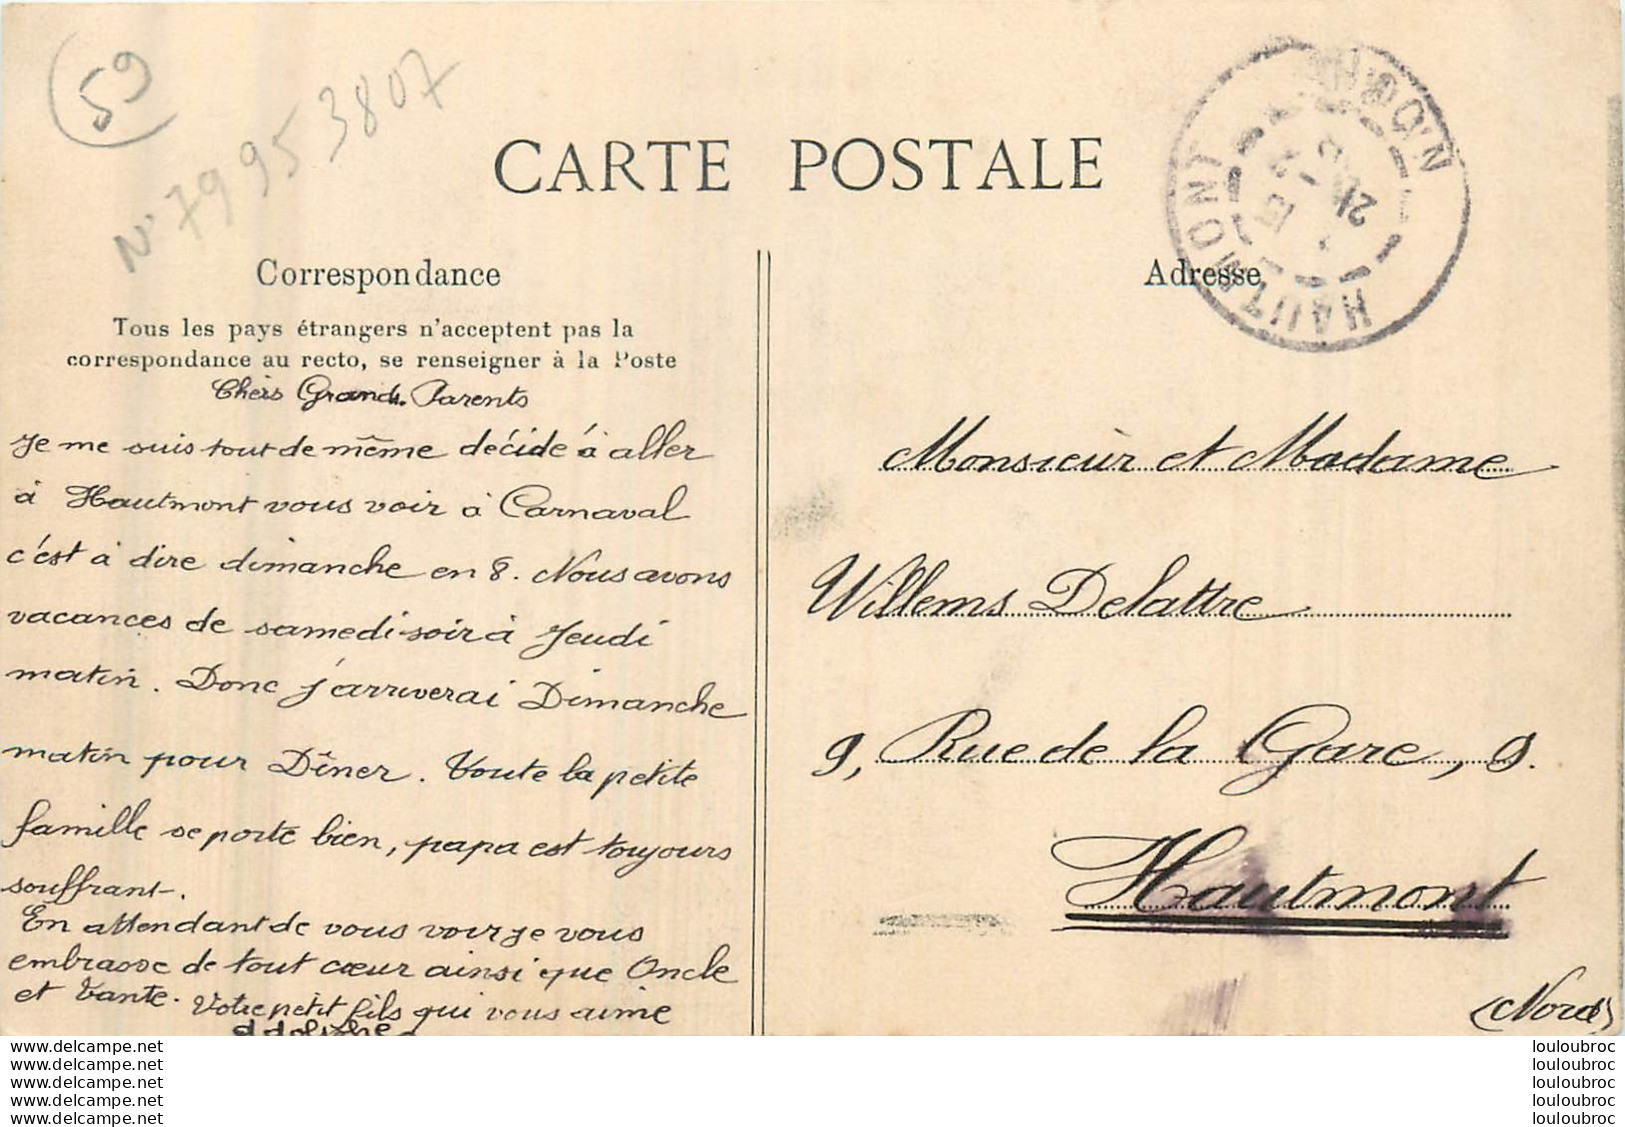 59
N° 79953807
CARTE POSTALE
HAUTMONT
21
Correspondance
Tous les pays étrangers n'acceptent pas la
correspondance au recto, se renseigner à la Poste
Chers Grands Parents
Je me suis tout de même décidé à aller
à Hautmont vous voir à Carnaval
c'est à dire dimanche en 8. Nous avons
vacances de samedi soir à Jeudi
matin. Donc j'arriverai Dimanche
matin pour Dîner. Toute la petite
famille se porte bien, papa est toujours
souffrant.
En attendant de vous voir je vous
embrasse de tout cœur ainsi que Oncle
et Tante. Votre petit fils qui vous aime
Adolphe
Adresse
Monsieur et Madame
Willems Delattre
9, Rue de la Gare, 9.
Hautmont
(Nord)
www.delcampe.net
www.delcampe.net
www.delcampe.net
www.delcampe.net
www.delcampe.net
louloubroc
louloubroc
louloubroc
louloubroc
louloubroc